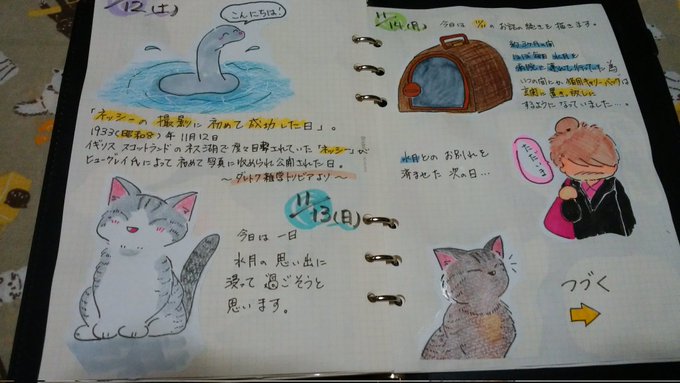 12(土)
こんにちは!
「ネッシーの撮影に初めて成功した日」。
1933(昭和8)年11月12日
イギリス スコットランドのネス湖で度々目撃されていた「ネッシー」が
ヒューグレイ氏によって初めて写真に収められ公開された日。
〜ダレトク雑学トリビアより〜
11/13(日)
今日は一日
水月の思い出に
浸って過ごそうと
思います。
11/14(月)
今日は
のお話の続きを描きます。
ほぼ毎日 水月を
いつの間にか、猫用キャリーバッグは
玄関に置きっ放しに
するようになっていました…。
水月とのお別れを
済ませた次の日…
ただいま
つづく